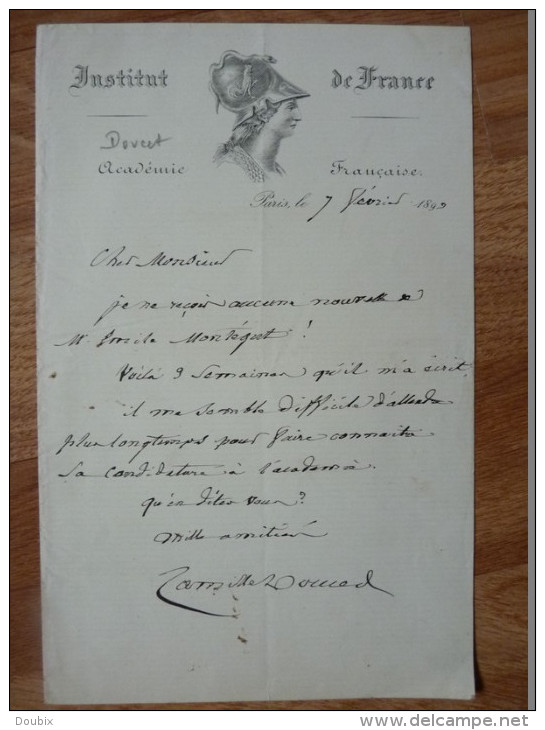 Institut de France
Doucet
Académie Française.
Paris, le 7 février 1892
Cher Monsieur
je ne reçois aucune nouvelle de
Mr Emile Montégut !
Voilà 3 semaines qu'il m'a écrit.
il me semble difficile d'attendre
plus longtemps pour faire connaître
sa candidature à l'académie.
qu'en dites vous ?
Mille amitiés
Camille Doucet
Doubix
www.delcampe.net